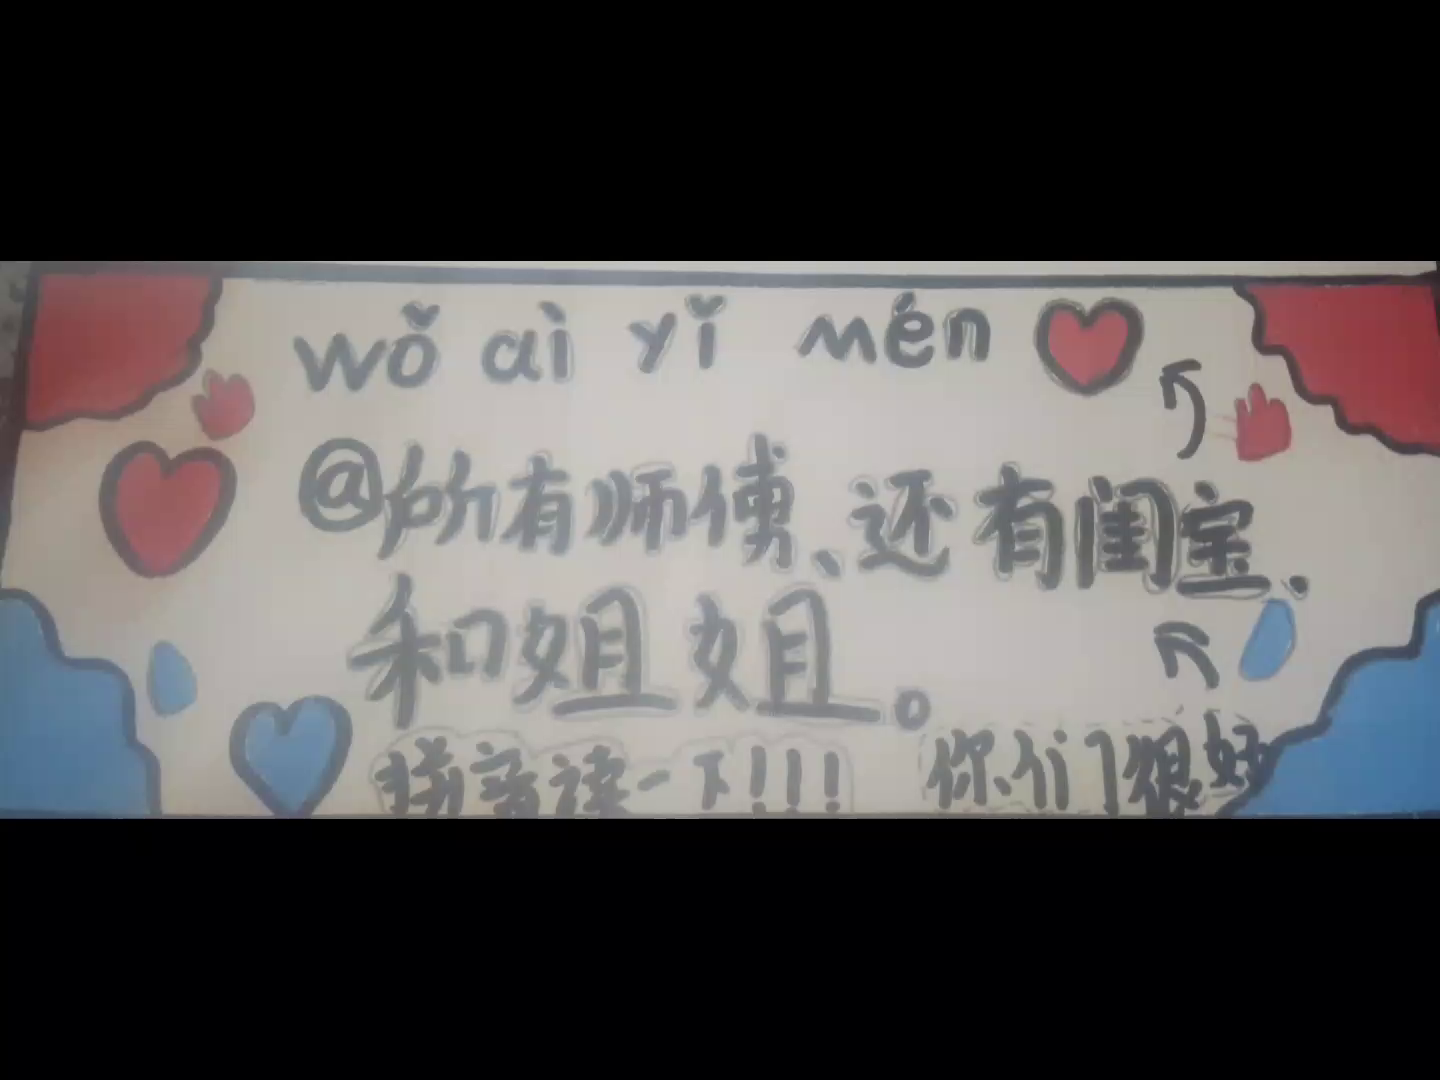 wǒ ài yǐ mén
@所有师傅、还有闺宝.
和姐姐。
拼音读一下!!! 你们很好